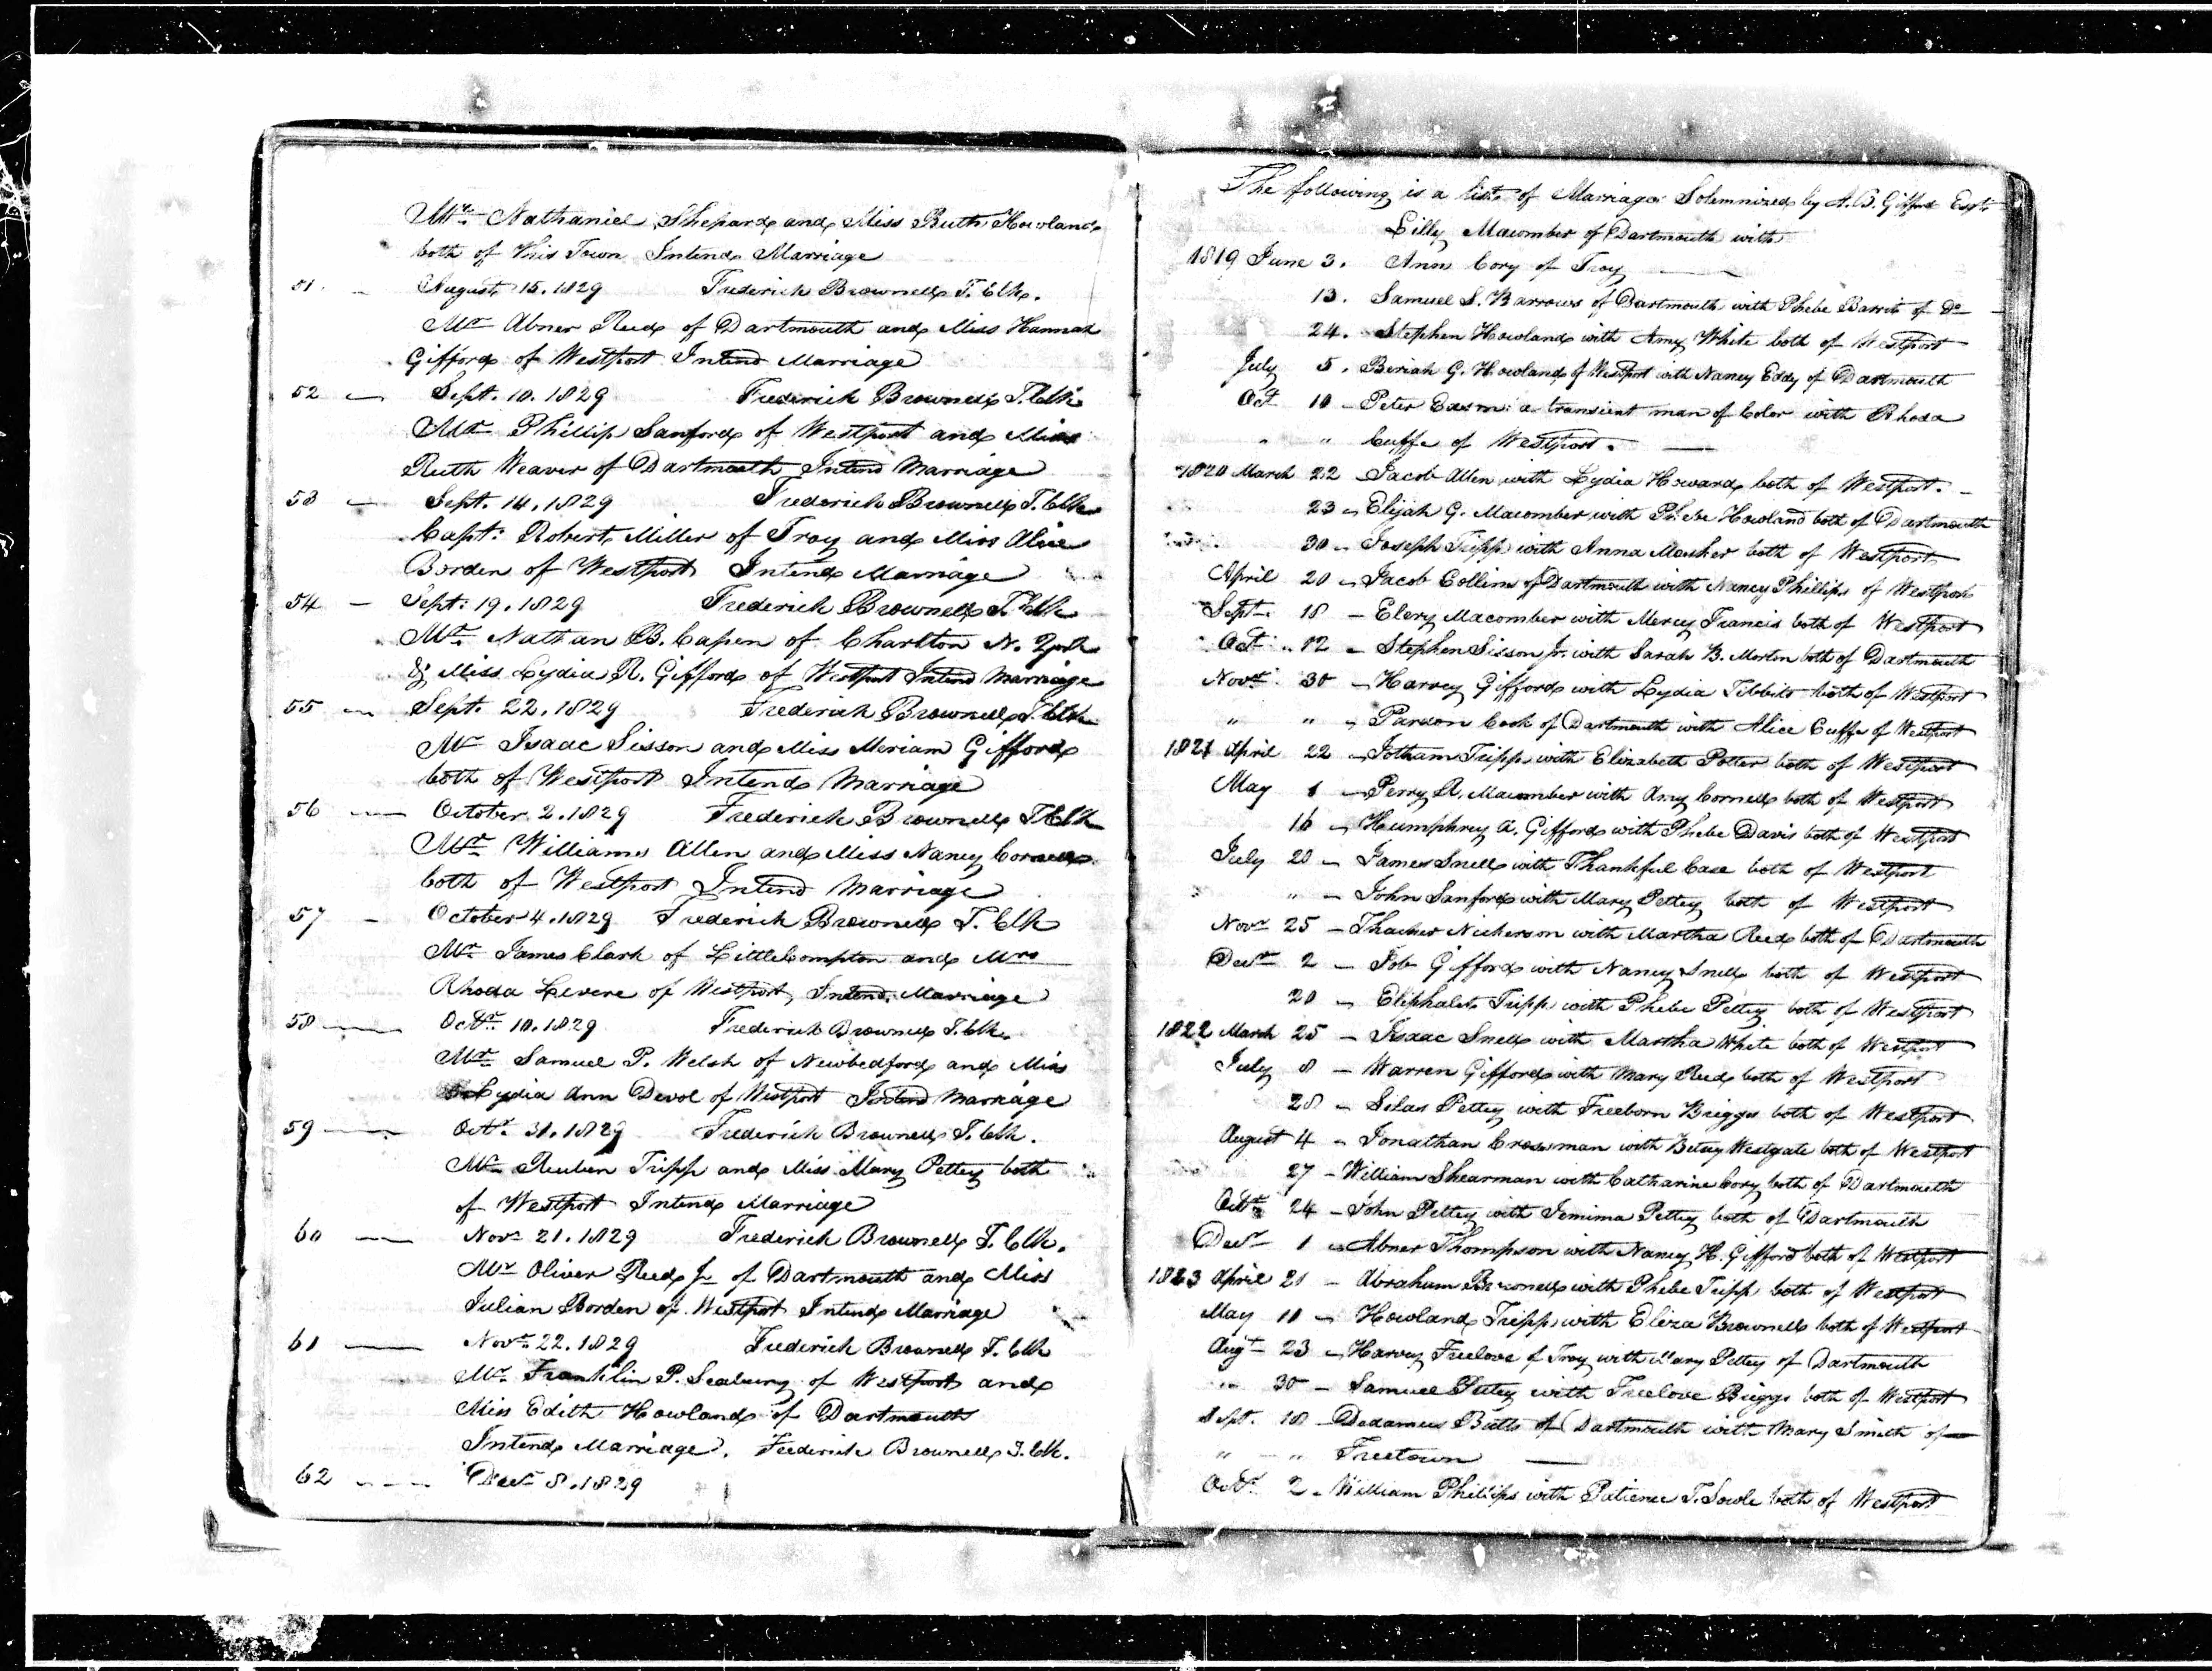 Mr. Nathaniel Shepard and Miss Ruth Howland
both of this Town Intend Marriage
51 August 15. 1829 Frederick Brownell T. Clk.
Mr Abner Reed of Dartmouth and Miss Hannah
Gifford of Westport Intend Marriage
52 Sept. 10. 1829 Frederick Brownell T. Clk
Mr Phillip Sanford of Westport and Miss
Ruth Weaver of Dartmouth Intend Marriage
53 Sept. 14. 1829 Frederick Brownell T. Clk
Capt: Robert Miller of Troy and Miss Alice
Borden of Westport Intend Marriage
54 Sept: 19. 1829 Frederick Brownell T. Clk
Mr. Nathan B. Capen of Charlton N. York
& Miss Lydia R. Gifford of Westport Intend Marriage
55 Sept. 22. 1829 Frederick Brownell T. Clk
Mr Isaac Sisson and Miss Meriam Gifford
both of Westport Intend Marriage
56 October 2. 1829 Frederick Brownell T Clk
Mr. William Allen and Miss Nancy Cornell
both of Westport Intend Marriage
57 October 4. 1829 Frederick Brownell T. Clk
Mr. James Clark of Little Compton and Mrs
Rhoda Levere of Westport Intend Marriage
58 Octr. 10. 1829 Frederick Brownell T. Clk.
Mr. Samuel P. Welsh of Newbedford and Miss
Lydia Ann Devol of Westport Intend Marriage
59 Octr. 31. 1829 Frederick Brownell T. Clk.
Mr Reuben Tripp and Miss Mary Pettey both
of Westport Intend Marriage
60 Novr 21. 1829 Frederick Brownell T. Clk.
Mr Oliver Reed Jr of Dartmouth and Miss
Julian Borden of Westport Intend Marriage
61 Novr. 22. 1829 Frederick Brownell T. Clk
Mr. Franklin P. Seabury of Westport and
Miss Edith Howland of Dartmouth
Intend Marriage. Frederick Brownell T. Clk.
62 Decr 8. 1829
The following is a list of Marriages Solemnized by A. B. Gifford Esqr.
Lilly Macomber of Dartmouth with
1819 June 3. Ann Cory of Troy
13. Samuel S. Barrows of Dartmouth with Phebe of Do
24. Stephen Howland with Amy White both of Westport
July 5. Beriah G. Howland of Westport with Nancy Eddy of Dartmouth
Oct 10 Peter a transient man of Color with Rhoda
" " Cuffe of Westport.
1820 March 22 Jacob Allen with Lydia Howard both of Westport.
23 Elijah G. Macomber with Phebe Howland both of Dartmouth
30 Joseph Tripp with Anna Mosher both of Westport
April 20 Jacob Collins of Dartmouth with Nancy Phillips of Westport
Sept. 18 Elery Macomber with Mercy Francis both of Westport
Oct 12 Stephen Sisson Jr. with Sarah B. Morton both of Dartmouth
Novr. 30 Harvey Gifford with Lydia Tibbits both of Westport
" " Pardon Cook of Dartmouth with Alice Cuffe of Westport
1821 April 22 Jotham Tripp with Elizabeth Potter both of Westport
May 6 Perry R. Macomber with Amy Cornell both of Westport
16 Humphrey A. Gifford with Phebe Davis both of Westport
July 20 James Snell with Thankful Case both of Westport
" John Sanford with Mary Pettey both of Westport
Novr 25 Thacher Nickerson with Martha Reed both of Dartmouth
Decr 2 Job Gifford with Nancy Snell both of Westport
20 Eliphalet Tripp with Phebe Pettey both of Westport
1822 March 25 Isaac Snell with Martha White both of Westport
July 8 Warren Gifford with Mary Reed both of Westport
28 Silas Pettey with Freeborn Briggs both of Westport
August 4 Jonathan Crossman with Betsy Westgate both of Westport
27 William Shearman with Catharine Cory both of Dartmouth
Octr 24 John Pettey with Jemima Pettey both of Dartmouth
Decr 1 Abner Thompson with Nancy H. Gifford both of Westport
1823 April 21 Abraham Brownell with Phebe Tripp both of Westport
May 11 Howland Tripp with Eliza Brownell both of Westport
Augt 23 Harvey Freelove of Troy with Mary Pettey of Dartmouth
" 30 Samuel Pettey with Freelove Briggs both of Westport
Sept. 18 Butts of Dartmouth with Mary Smith of
" " Freetown
Octr. 2 William Phillips with Patience T. Sowle both of Westport